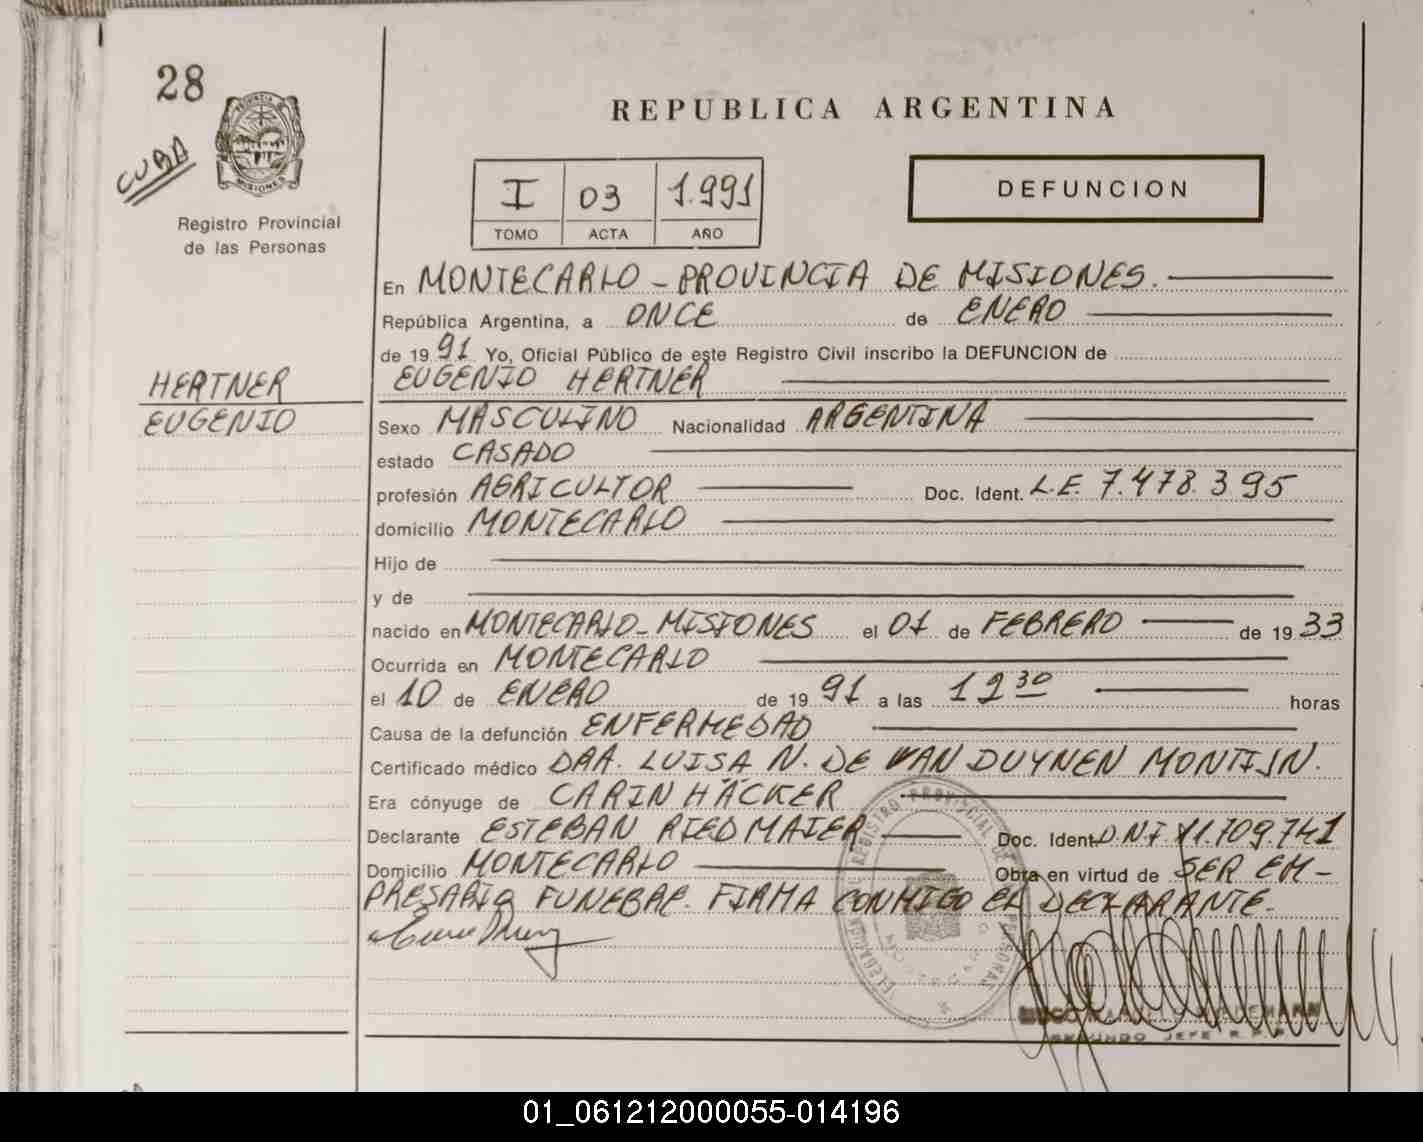 28
PROVINCIA DE
MISIONES
CUBA
Registro Provincial
de las Personas
REPUBLICA ARGENTINA
I 03 1.991
TOMO ACTA AÑO
DEFUNCION
En MONTECARLO - PROVINCIA DE MISIONES.
República Argentina, a ONCE de ENERO
de 1991 Yo, Oficial Público de este Registro Civil inscribo la DEFUNCION de
HERTNER
EUGENIO HERTNER
EUGENIO
Sexo MASCULINO Nacionalidad ARGENTINA
estado CASADO
profesión AGRICULTOR Doc. Ident. L.E. 7.478.395
domicilio MONTECARLO
Hijo de
y de
nacido en MONTECARLO - MISIONES el 01 de FEBRERO de 1933
Ocurrida en MONTECARLO
el 10 de ENERO de 1991 a las 12 30 horas
Causa de la defunción ENFERMEDAD
Certificado médico DRA. LUISA N. DE VAN DUYNEN MONTIJN.
Era cónyuge de CARIN HÄCKER
Declarante ESTEBAN RIEDMAIER Doc. Ident. D.N.I 11.709.741
Domicilio MONTECARLO Obra en virtud de SER EM-
PRESARIO FUNEBRE. FIRMA CONMIGO EL DECLARANTE.
REGISTRO PROVINCIAL DE PERSONAS
SEGUNDO JEFE
01_061212000055-014196